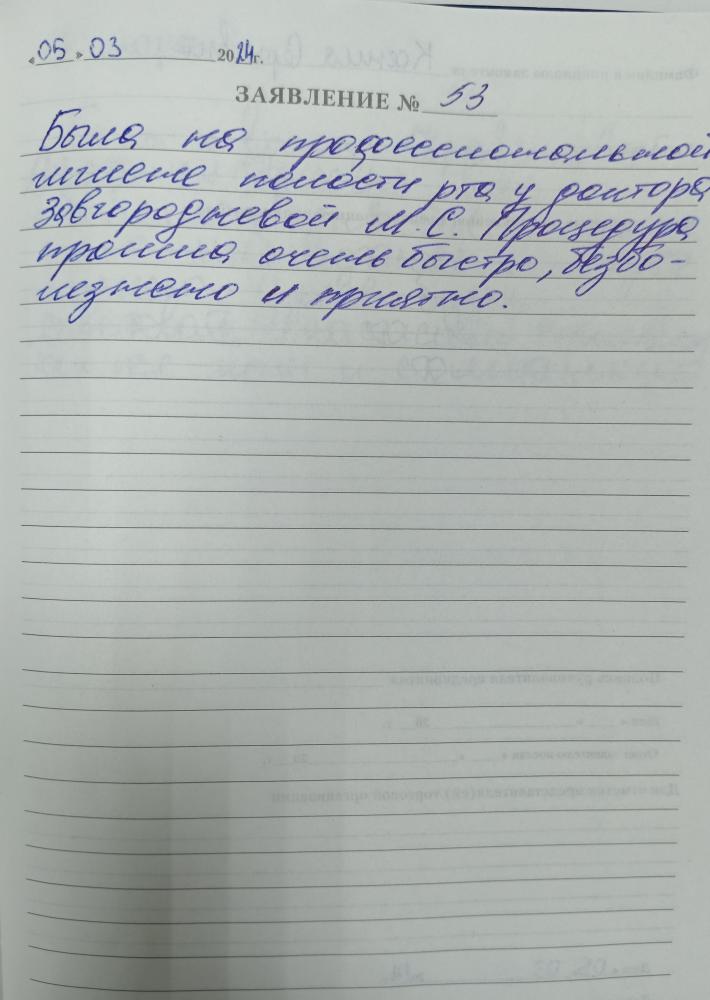 «05» 03 2024г.
ЗАЯВЛЕНИЕ № 53
Была на профессиональной
гигиене полости рта у доктора
Завгородневой М.С. Процедура
прошла очень быстро, безбо-
лезнено и приятно.